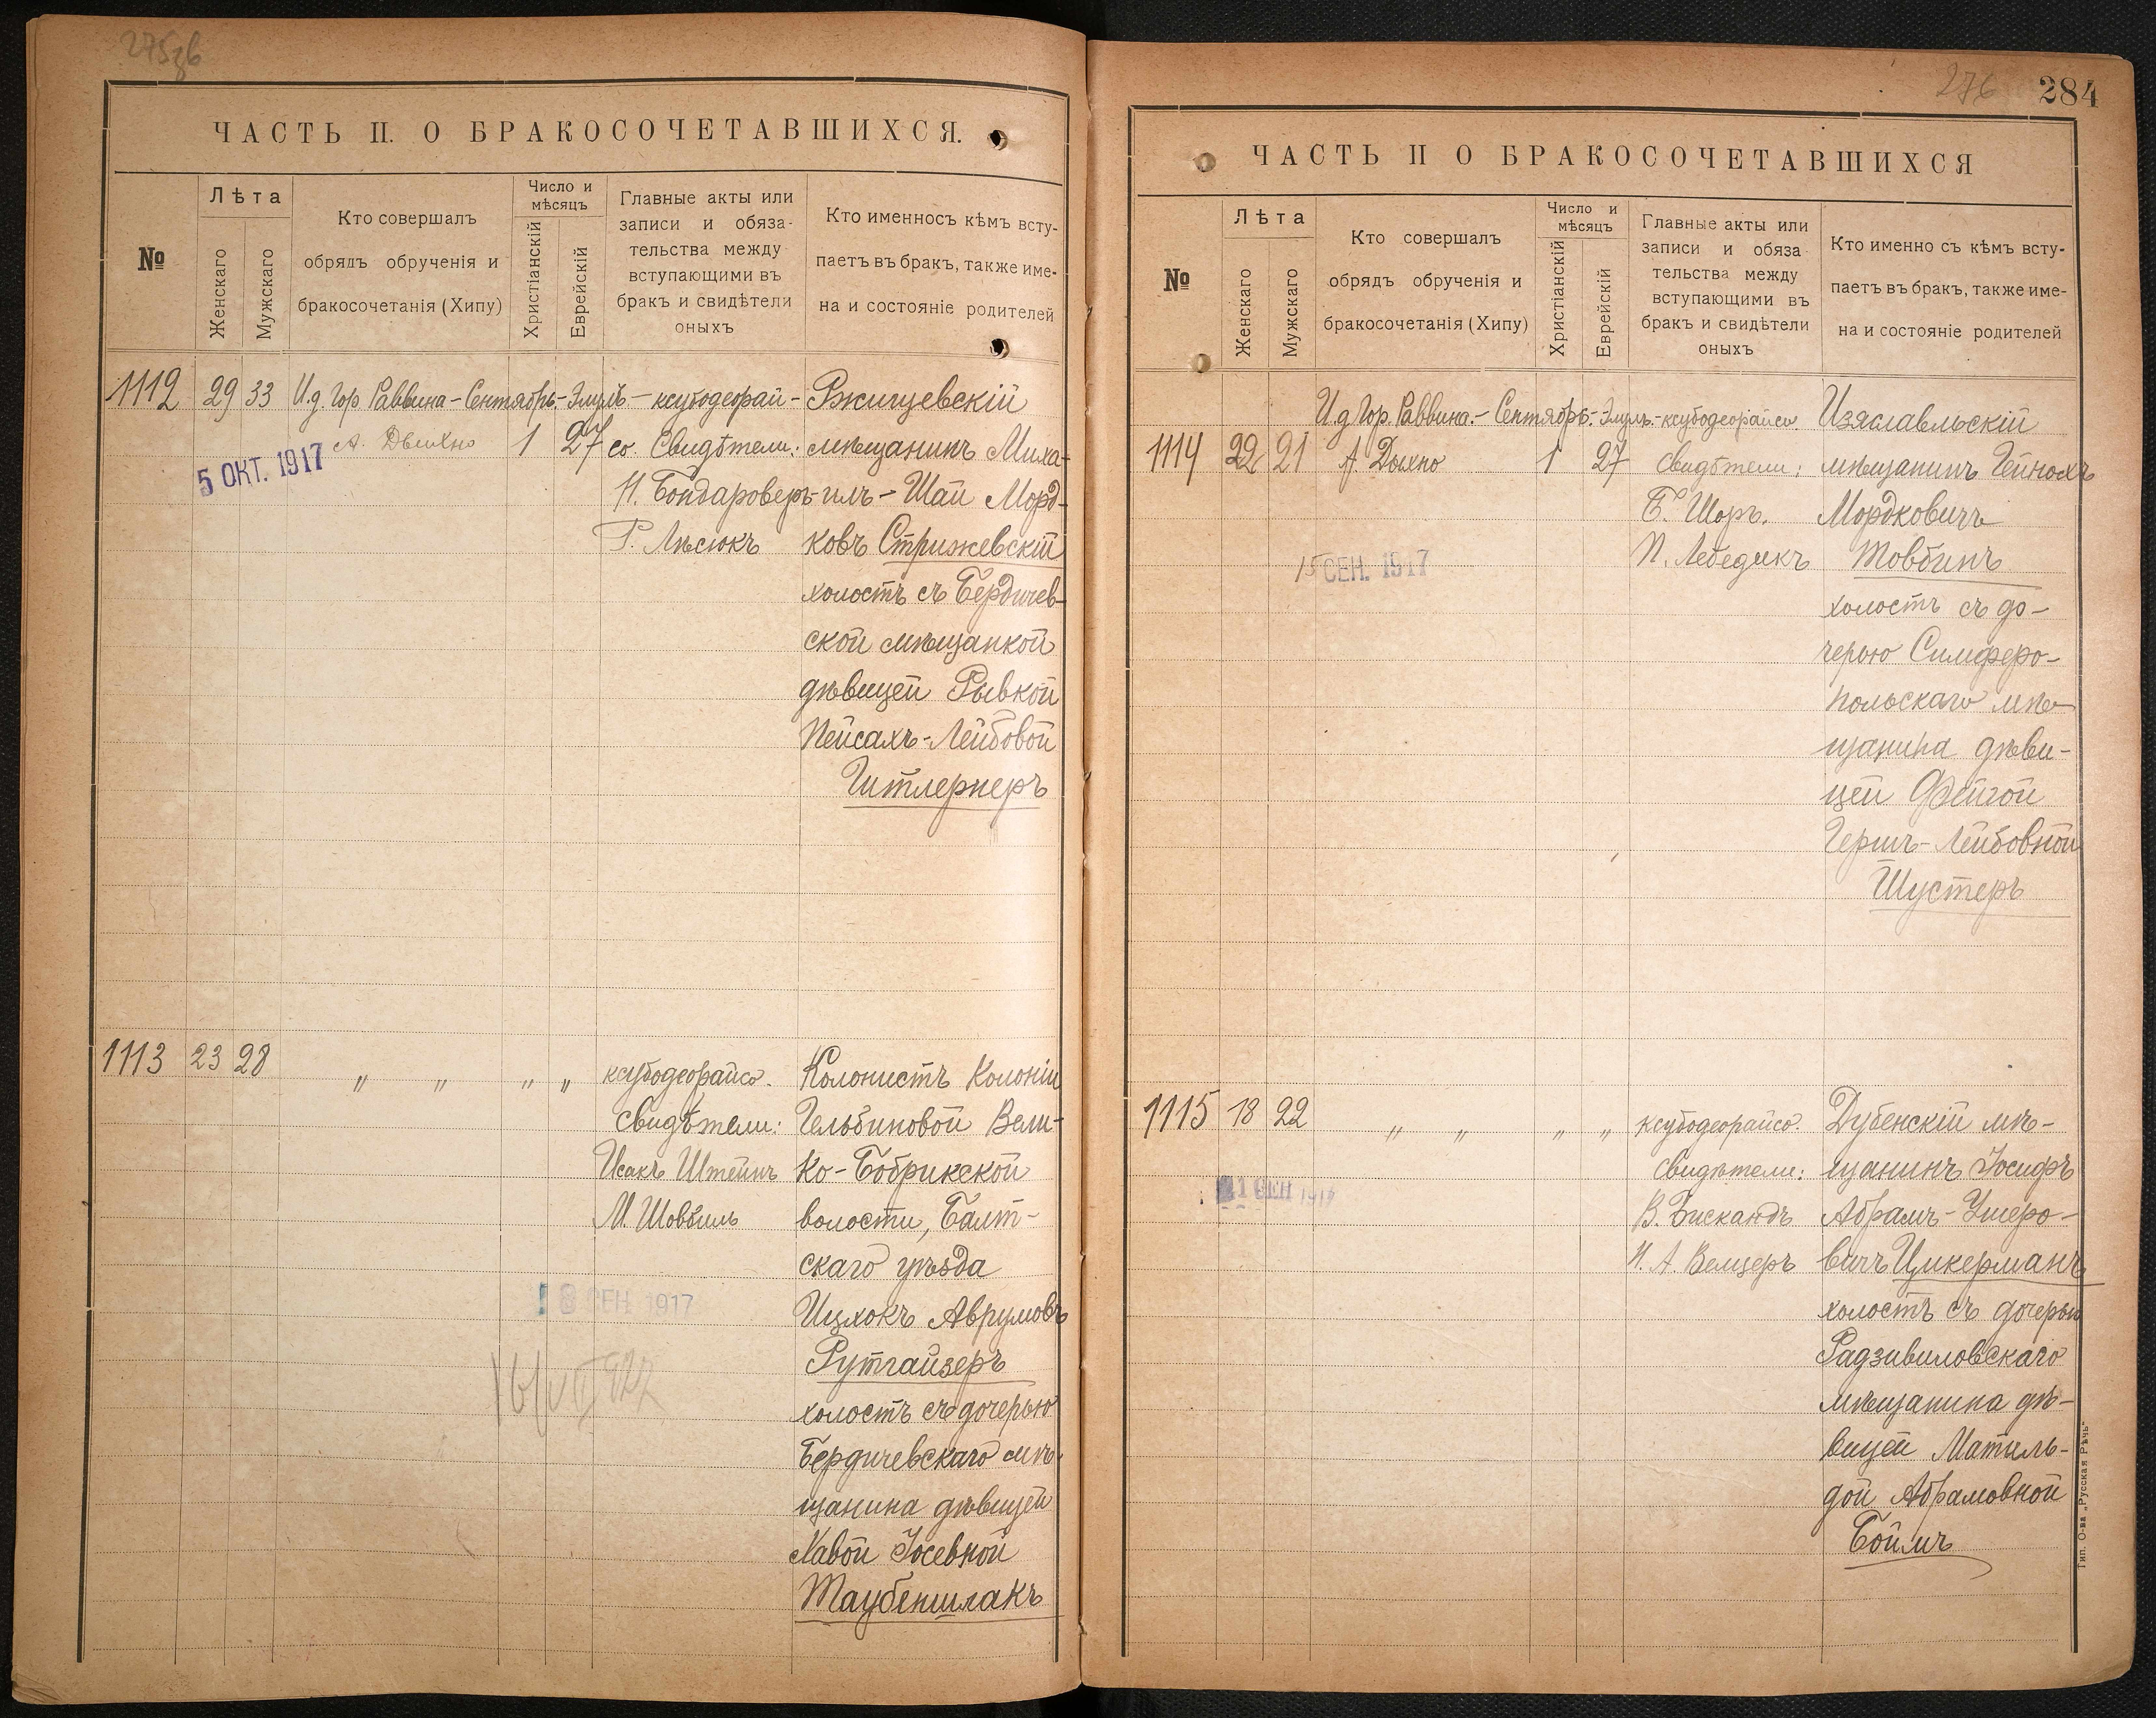 275зв
ЧАСТЬ II. О БРАКОСОЧЕТАВШИХСЯ.
№
Лѣта
Женскаго
Мужскаго
Кто совершалъ
обрядъ обрученія и
бракосочетанія (Хипу)
Число и
мѣсяцъ
Христіанскій
Еврейскій
Главные акты или
записи и обяза-
тельства между
вступающими въ
бракъ и свидѣтели
оныхъ
Кто именносъ кѣмъ всту-
паетъ въ бракъ, также име-
на и состояніе родителей
1112
29
33
И.д. Гор. Раввина - Сентябрь - Элулъ - ксубодеорай-
А. Дыхно
1
27
со. Свидѣтели:
Н. Бондароверъ
Р. Лѣсюкъ
5 ОКТ. 1917
Ржищевскій
мѣщанинъ Миха-
илъ-Шаи Морд-
ковъ Стрижевскій
холостъ съ Бердичев-
ской мѣщанкой
дѣвицей Рывкой
Пейсахъ-Лейбовой
Гитлернеръ
1113
23
28
" "
" "
ксубодеорайсо.
Свидѣтели:
Исакъ Штейнъ
М. Шовбиль
18 СЕН. 1917
Колонистъ Колоніи
Гельбиновой Вели-
ко-Бобрикской
волости, Балт-
скаго уѣзда
Ицхокъ Аврумовъ
Рутгайзеръ
холостъ съ дочерью
Бердичевскаго мѣ-
щанина дѣвицей
Хавой Іосевной
Таубеншлакъ
276
284
ЧАСТЬ II О БРАКОСОЧЕТАВШИХСЯ
№
Лѣта
Женскаго
Мужскаго
Кто совершалъ
обрядъ обрученія и
бракосочетанія (Хипу)
Число и
мѣсяцъ
Христіанскій
Еврейскій
Главные акты или
записи и обяза-
тельства между
вступающими въ
бракъ и свидѣтели
оныхъ
Кто именно съ кѣмъ всту-
паетъ въ бракъ, также име-
на и состояніе родителей
1114
22
21
И.д. Гор. Раввина. - Сентябрь. - Элулъ. - ксубодеорайсо.
А. Дыхно
1
27
Свидѣтели:
Б. Шоръ.
П. Лебедикъ
15 СЕН. 1917
Изяславльскій
мѣщанинъ Гейнохъ
Мордковичъ
Товбинъ
холостъ съ до-
черью Симферо-
польскаго мѣ-
щанина дѣви-
цей Фейгой
Гершъ-Лейбовной
Шустеръ
1115
18
22
" "
" "
ксубодеорайсо.
Свидѣтели:
В. Бискандъ
Н. А. Велцеръ
21 СЕН 1917
Дубенскій мѣ-
щанинъ Іосифъ
Абрамъ-Ушеро-
вичъ Цукерманъ
холостъ съ дочерью
Радзивиловскаго
мѣщанина дѣ-
вицей Матиль-
дой Абрамовной
Боймъ
Тип. О-ва „Русская Рѣчь"